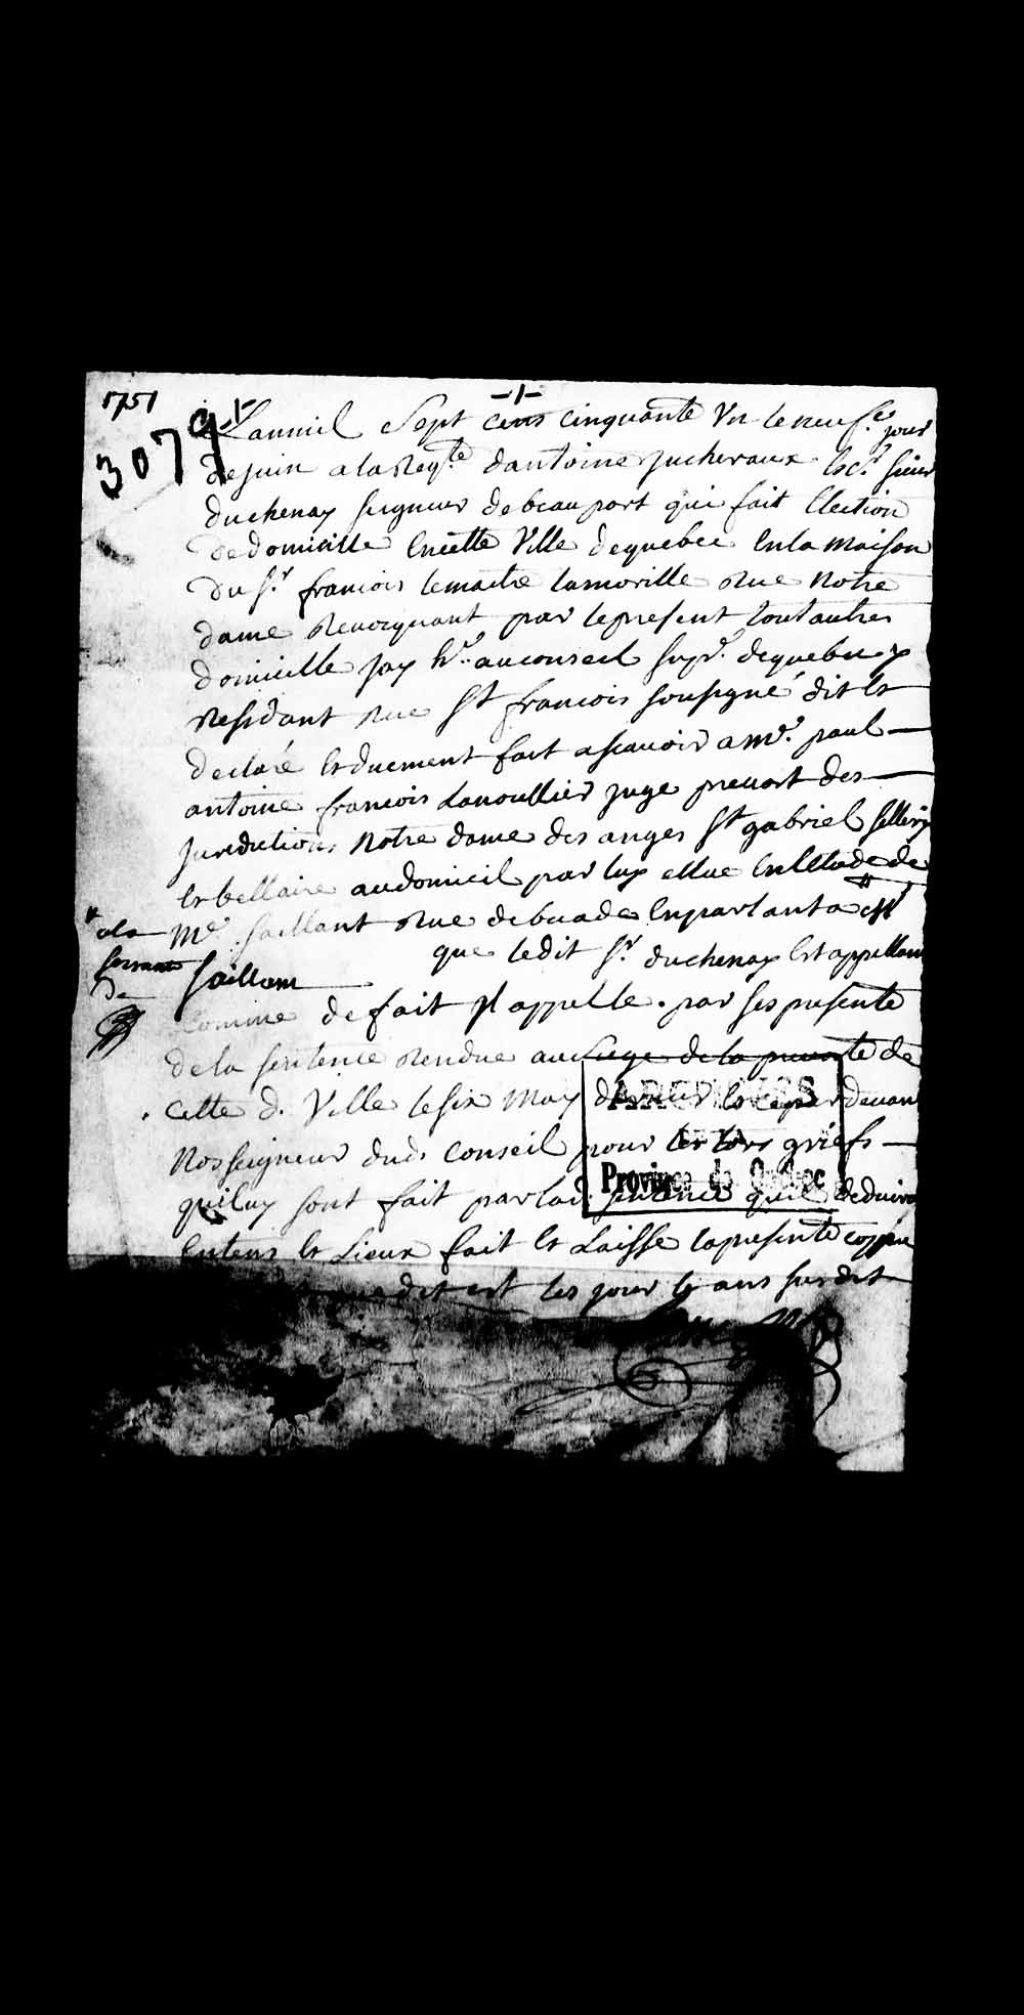 1751
-1-
3079
Lanmil Sept cens cinquante Un le neufe. jour
de juin a la Reqte. dantoine juchereaux Ecr. sieur
duchenay seigneur de beauport qui fait Election
de domicille En cette Ville dequebec En la maison
du sr. francois lemaitre lamorille Rue Notre
dame Revocquant par le present tout autres
domicille jay hr. au conseil supr. dequebec y
Residant Rue St francois soussigné dit et
declaré et duement fait a scavoir a me. paul
antoine francois Lanoullier juge prevost des
jurediction Notre dame des anges St gabriel sillery
et bellaire au domicil par luy Elue En letude de
me. saillant Rue de buade En parlant a
a la
servante
de
saillant
que ledit sr. duchenay Est appellant
comme de fait yl appelle par ses presente
de la sentence Rendue au siege de la prevosté de
cette d. Ville le six may dernier et ce par devant
Nosseigneur dud. conseil pour les tors griefs
qui luy sont fait par lad. sentence quil deduira
En tems et Lieux fait et Laisse la presente coppie
dit est les jour et ans susdit
ARCHIVES
DE LA
Province de Québec